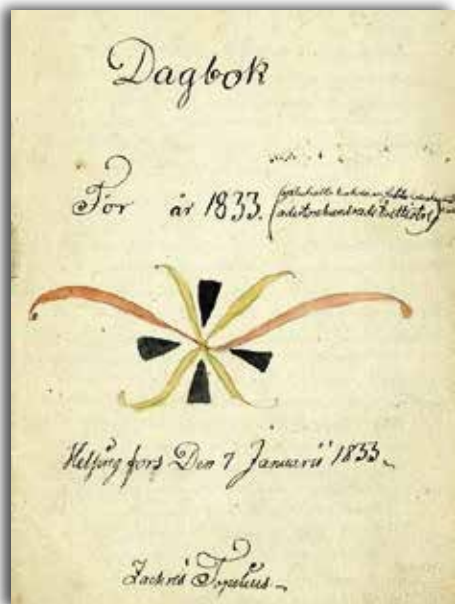 Dagbok
För år 1833.
Helsingfors Den 7 Januarii 1833.
Zachris Topelius